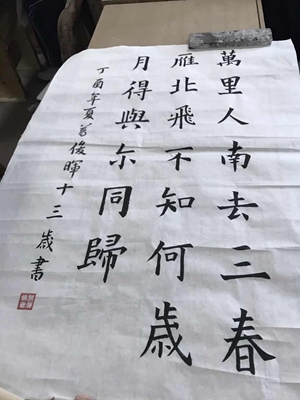 萬里人南去三春
雁北飛不知何歳
月得與尓同歸
丁酉年夏俊暉十三歲書